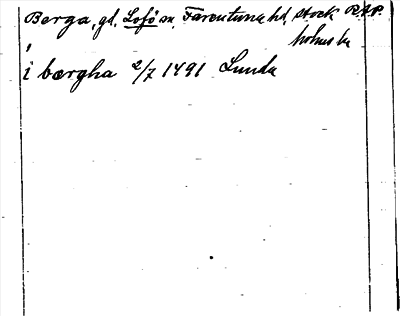 Berga, gd, Lofö sn, Färentuna hd, Stock R.A.P.
holms lv
i bærgha 2/7 1491 Lunda